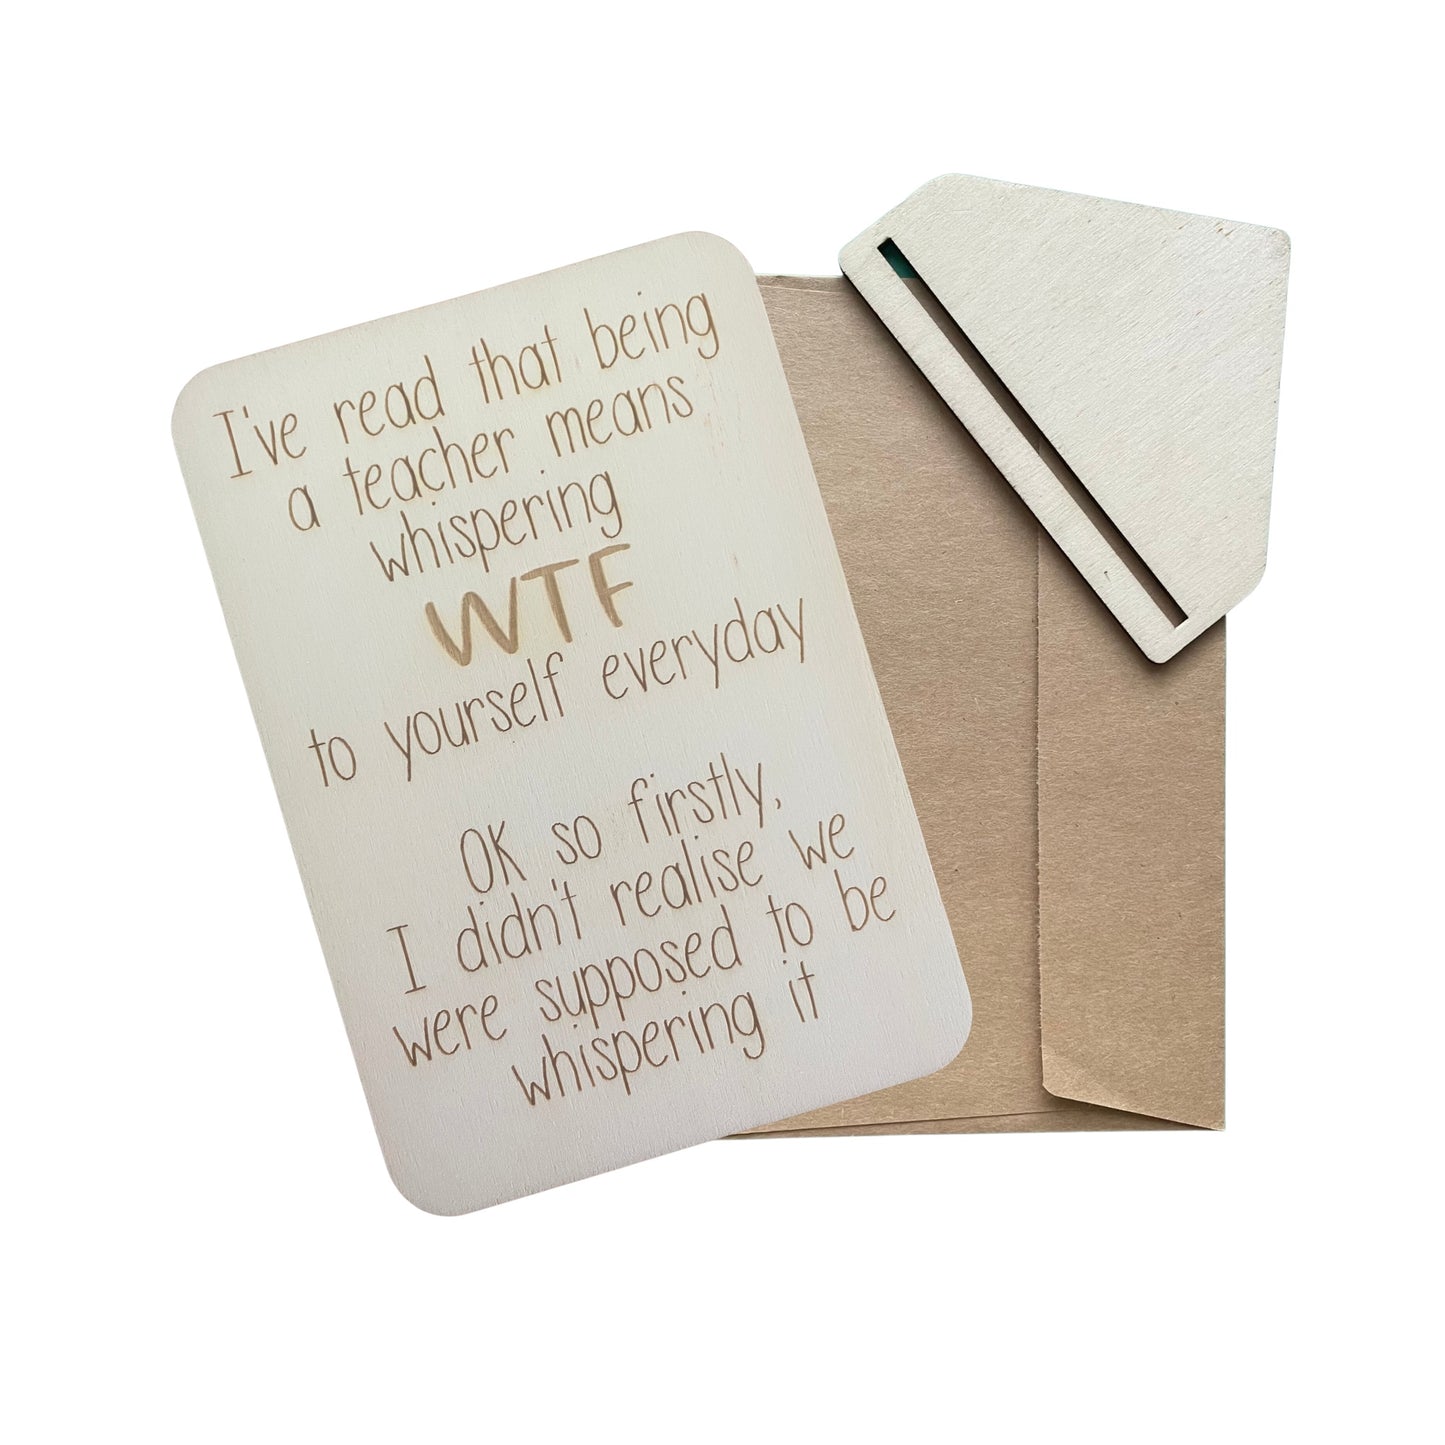 I've read that being
a teacher means
whispering
WTF
to yourself everyday
OK so firstly,
I didn't realise we
were supposed to be
whispering it